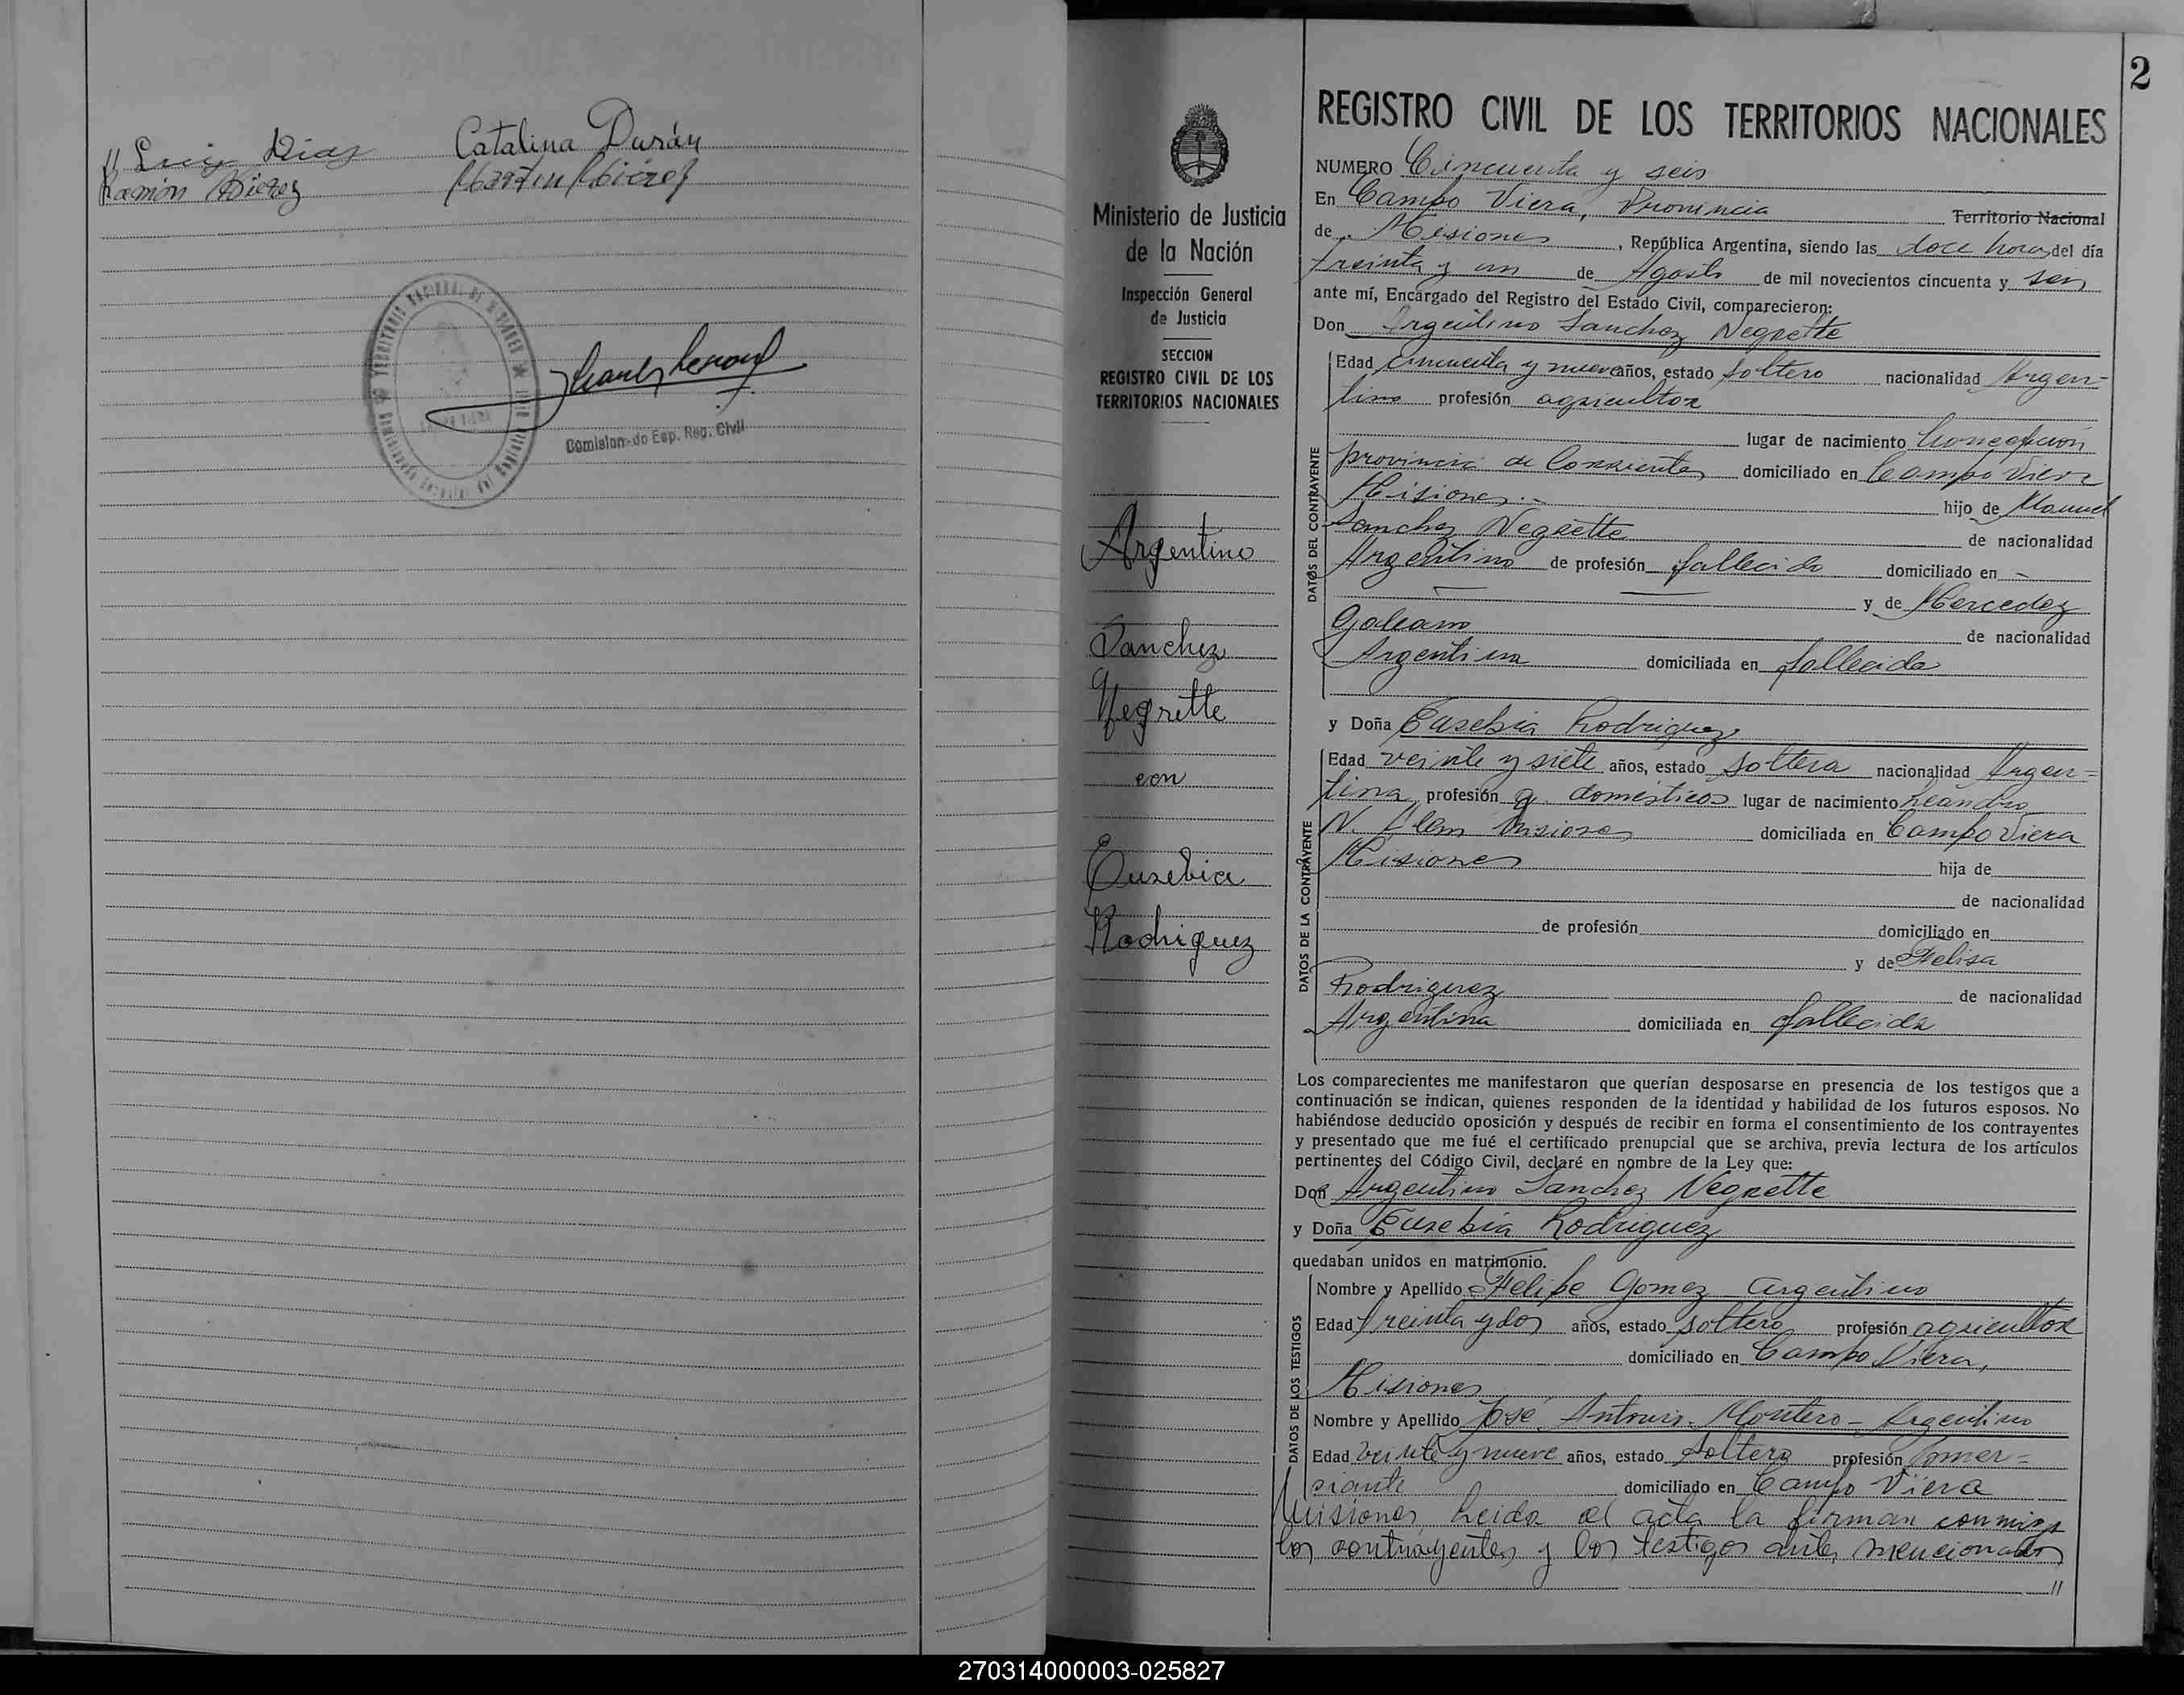 // Luis Dias Catalina Durán
Ramón
Comision-do Esp. Reg. Civil
2
Ministerio de Justicia
de la Nación
Inspección General
de Justicia
SECCION
REGISTRO CIVIL DE LOS
TERRITORIOS NACIONALES
Argentino
Sanchez
Negrette
con
Eusebia
Rodriguez
REGISTRO CIVIL DE LOS TERRITORIOS NACIONALES
NUMERO Cincuenta y seis
En Campo Viera, Provincia Territorio Nacional
de Misiones, República Argentina, siendo las doce horas del día
treinta y un de Agosto de mil novecientos cincuenta y seis
ante mí, Encargado del Registro del Estado Civil, comparecieron:
Don Argentino Sanchez Negrette
DATOS DEL CONTRAYENTE
Edad cincuenta y nueve años, estado soltero nacionalidad Argen-
tino profesión agricultor
lugar de nacimiento Concepcion
provincia de Corrientes domiciliado en Campo Viera
Misiones.- hijo de Manuel
Sanchez Negrette de nacionalidad
Argentino de profesión fallecido domiciliado en -
y de Mercedez
Galeano de nacionalidad
Argentina domiciliada en fallecida
y Doña Eusebia Rodriguez
DATOS DE LA CONTRAYENTE
Edad veinte y siete años, estado soltera nacionalidad Argen=
tina profesión q. domésticos lugar de nacimiento Leandro
N. Alem Misiones domiciliada en Campo Viera
Misiones hija de
de nacionalidad
de profesión domiciliado en
y de Felisa
Rodriguez de nacionalidad
Argentina domiciliada en fallecida
Los comparecientes me manifestaron que querían desposarse en presencia de los testigos que a
continuación se indican, quienes responden de la identidad y habilidad de los futuros esposos. No
habiéndose deducido oposición y después de recibir en forma el consentimiento de los contrayentes
y presentado que me fué el certificado prenupcial que se archiva, previa lectura de los artículos
pertinentes del Código Civil, declaré en nombre de la Ley que:
Don Argentino Sanchez Negrette
y Doña Eusebia Rodriguez
quedaban unidos en matrimonio.
DATOS DE LOS TESTIGOS
Nombre y Apellido Felipe Gomez - argentino
Edad treinta y dos años, estado soltero profesión agricultor
domiciliado en Campo Viera,
Misiones
Nombre y Apellido José Antonio Montero - Argentino
Edad veinte y nueve años, estado soltero profesión Comer=
siante domiciliado en Campo Viera
Misiones Leida el acta la firman conmigo
los contrayentes y los testigos antes mencionados
//
270314000003-025827